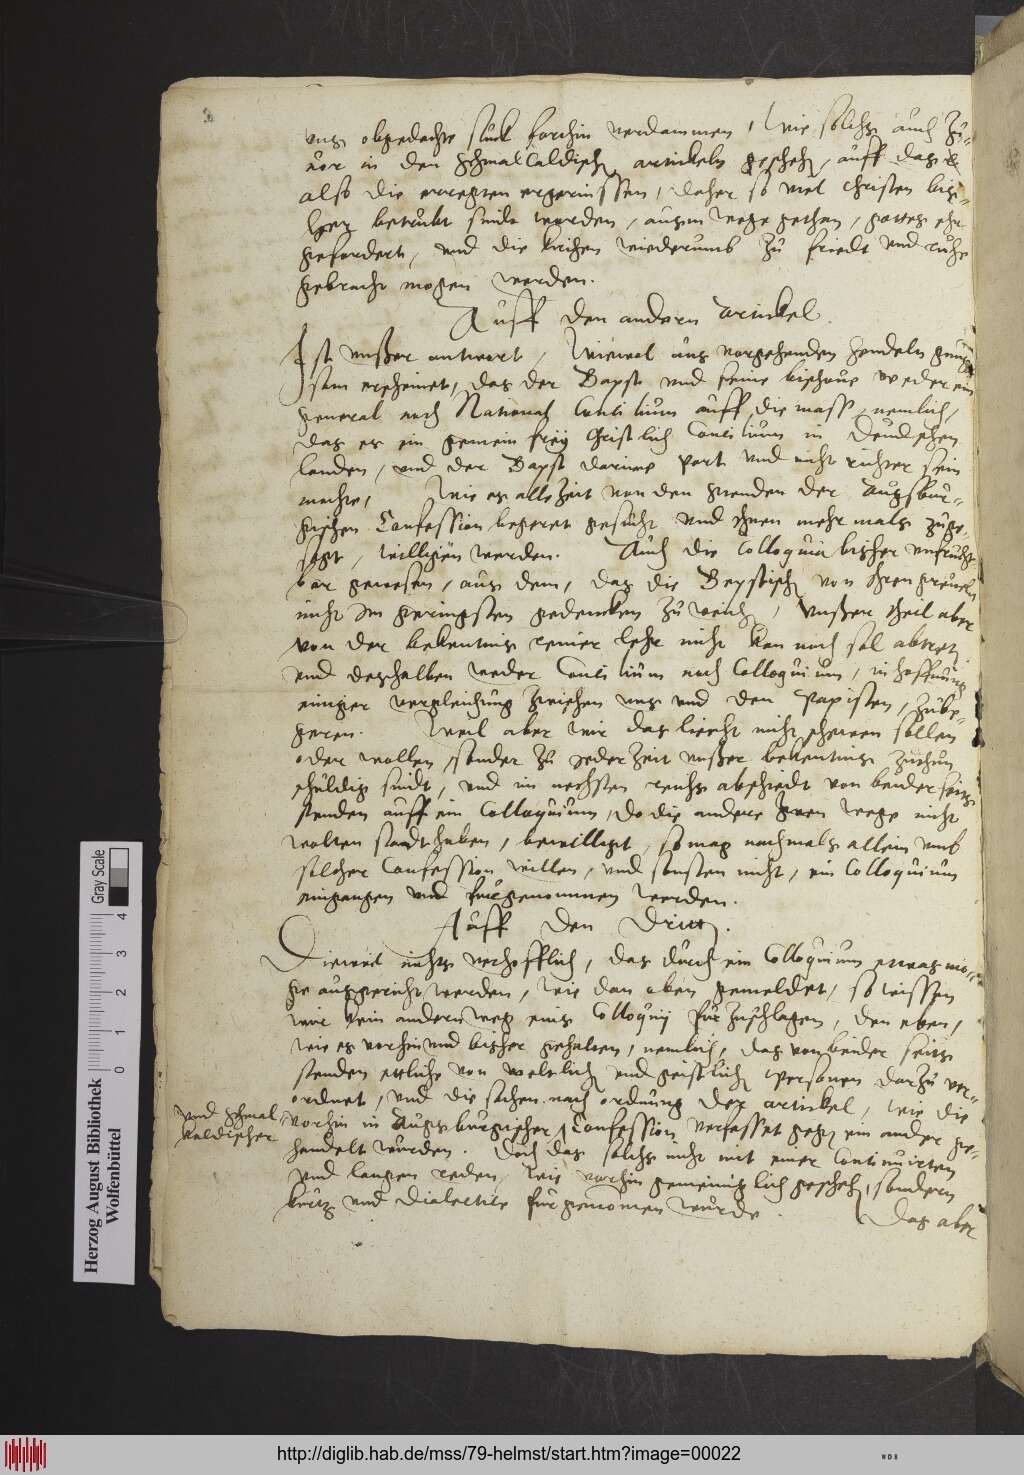 uns obgedachte stuck forthin verdammen, Wie solchs auch zu-
vor in den Schmalcaldisch artickeln gescheh, auff das
also die erregten ergernissen, daher so viel Christen bis-
her betrubt sindt worden, aus dem wege gethan, gottes ehr
gefordert, und die kirchen wiederumb zu friedt und ruhe
gebracht mogen werden.
Auff den andern Artickel.
Ist unßer antwort, Wiewol aus vorgehenden handeln gnug-
sam erscheinet, das der Bapst und seine bischove weder ein
general noch National Concilium auff die mass, nemlich,
das es ein gemein frey Christlich Concilium in Deudschen
landen, und der Bapst darinne part und nicht richter sein
mochte, Wie es alle Zeit von den stenden der Augsbur-
gischen Confession begeret gesucht und ihnen mehrmals zuge-
sagt, willigen werden. Auch die Colloquia bisher unfrucht-
bar gewesen, aus dem, das die Bepstisch von ihren greweln
nicht im geringsten gedencken zu weich, Unßer theil aber
von der bekentnis reiner lehr nicht kan noch sol abtret
und deshalben weder Concilium noch Colloquium, in hoffnung
einiger vergleichung zwischen uns und den Papisten, zube-
geren. Weil aber wir das liecht nicht schewen sollen
oder wollen, sonder zu jeder zeit unßer bekentnis zuthun
schuldig sindt, und im nechsten reichs abschiedt von beiderseits
stenden auff ein Colloquium, do die andere zwen wege nicht
wolten stadt haben, bewilliget, so mag nochmals allein umb
solcher Confession willen, und sonsten nicht, ein Colloquium
eingangen und furgenommen werden.
Auff den Dritt.
Dieweil nichts verhofflich, das durch ein Colloquium etwas
ausgericht werden, Wie dan oben gemeldet, so wissen
wir kein andern weg eins Colloquij fur zuschlagen, den eben,
wie es vorhin und bisher gehalten, nemlich, das von beider seits
stenden etliche von weltlich und geistlich Personen darzu ver-
ordnet, und die sachen nach ordnung der artickel, wie die
und Schmal-
kaldischer
vorhin in Augsburgischer Confession verfasset gegen ein ander ge-
handelt wurden. Doch das solchs nicht mit einer Continuirten
und langen reden, wie vorhin gemeiniglich gescheh, sondern
kurtz und Dialectice furgenomen wurde.
Das aber
Herzog August Bibliothek
Wolfenbüttel
0 1 2 3 4 Gray Scale
http://diglib.hab.de/mss/79-helmst/start.htm?image=00022